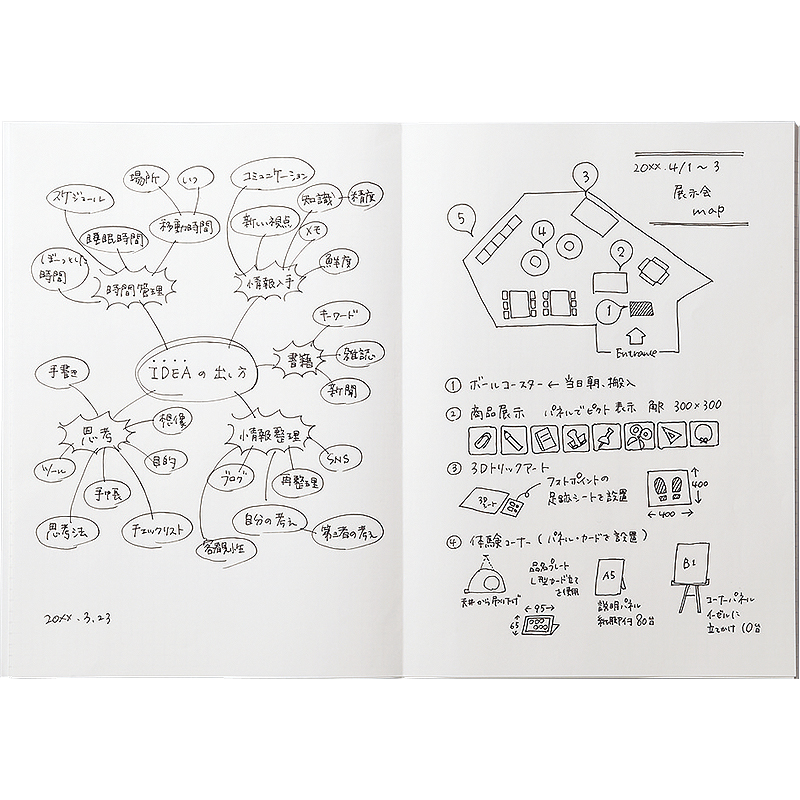 IDEAの出し方
時間管理
スケジュール
場所
いつ
睡眠時間
移動時間
ぼーっとした
時間
情報入手
コミュニケーション
新しい視点
知識
精度
メモ
鮮度
書籍
キーワード
雑誌
新聞
情報整理
SNS
再整理
ブログ
自分の考え
第三者の考え
客観性
思考
手書き
想像
目的
ツール
手帳
思考法
チェックリスト
20xx.3.23
20xx.4/1〜3
展示会
map
3
5
4
2
1
Entrance
① ボールコースター ← 当日朝、搬入
② 商品展示 パネルでピクト表示 角 300×300
③ 3Dトリックアート
3Dシート
フォトポイントの
足跡シートで設置
400
400
④ 体験コーナー (パネル・カードで設置)
天井から吊り下げ
品名プレート
L型カード立て
を使用
95
65
A5
説明パネル
80台
B1
コーナーパネル
イーゼルに
立てかけ 10台